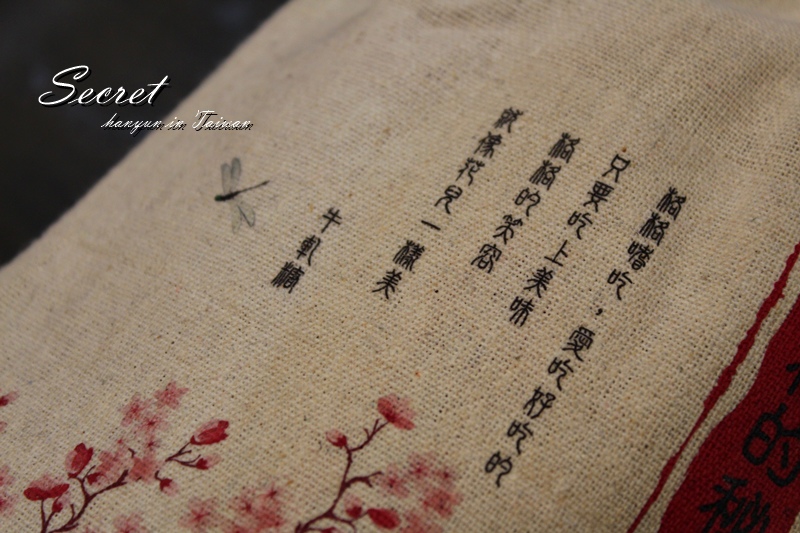 Secret
hanyun in Taiwan
格格嗜吃，愛吃好吃的
只要吃上美味
格格的笑容
就像花兒一樣美
牛軋糖
的秘